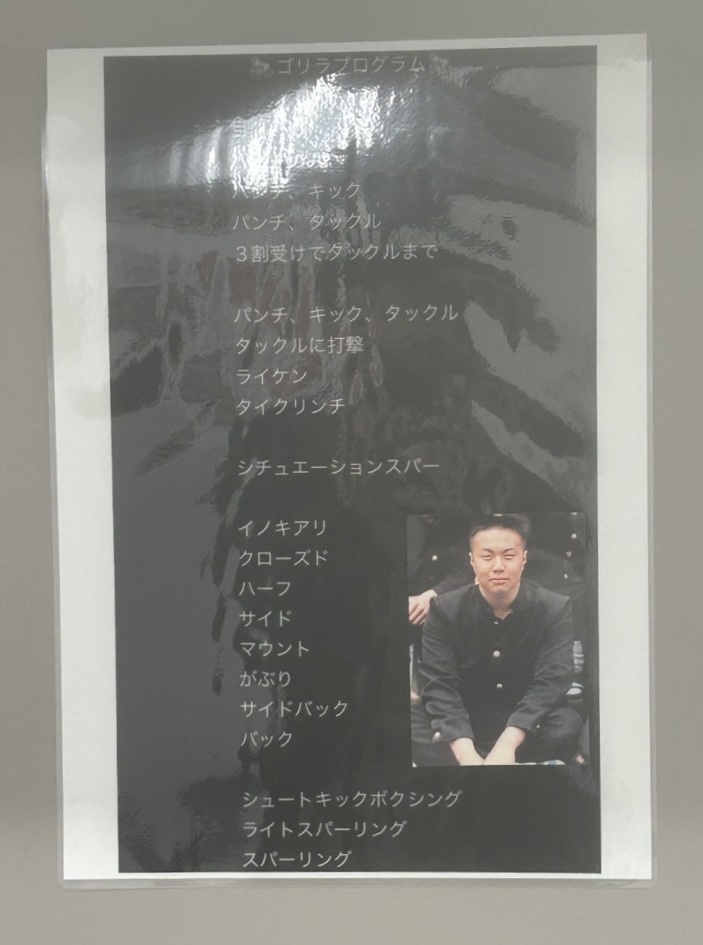 ゴリラプログラム
パンチ、キック
パンチ、タックル
３割受けでタックルまで
パンチ、キック、タックル
タックルに打撃
ライケン
タイクリンチ
シチュエーションスパー
イノキアリ
クローズド
ハーフ
サイド
マウント
がぶり
サイドバック
バック
シュートキックボクシング
ライトスパーリング
スパーリング